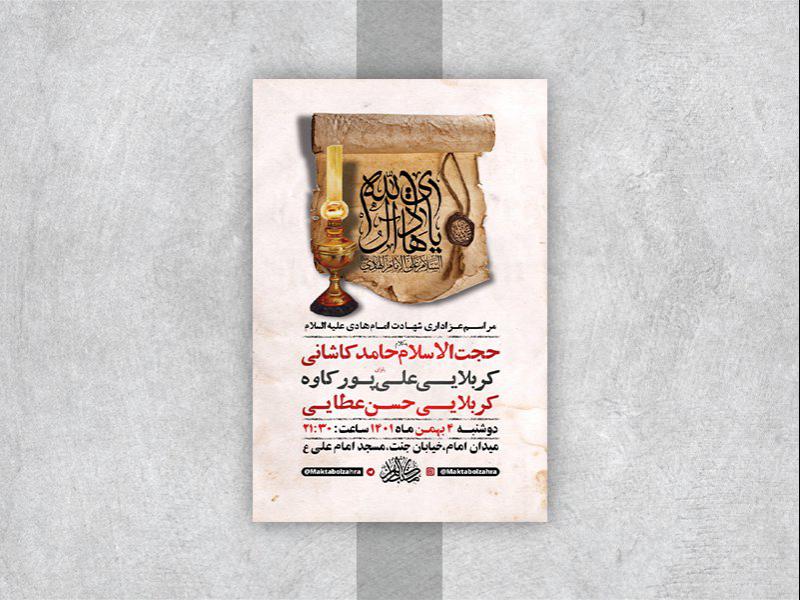 یا هادی آل الله
السلام علی الامام الهادی
مراسم عزاداری شهادت امام هادی علیه السلام
حجت الاسلام حامد کاشانی
کربلایی علی پور کاوه
کربلایی حسن عطایی
دوشنبه ۴ بهمن ماه ۱۴۰۱ ساعت: ۲۱:۳۰
میدان امام، خیابان جنت، مسجد امام علی ع
@Maktabolzahra @Maktabolzahra